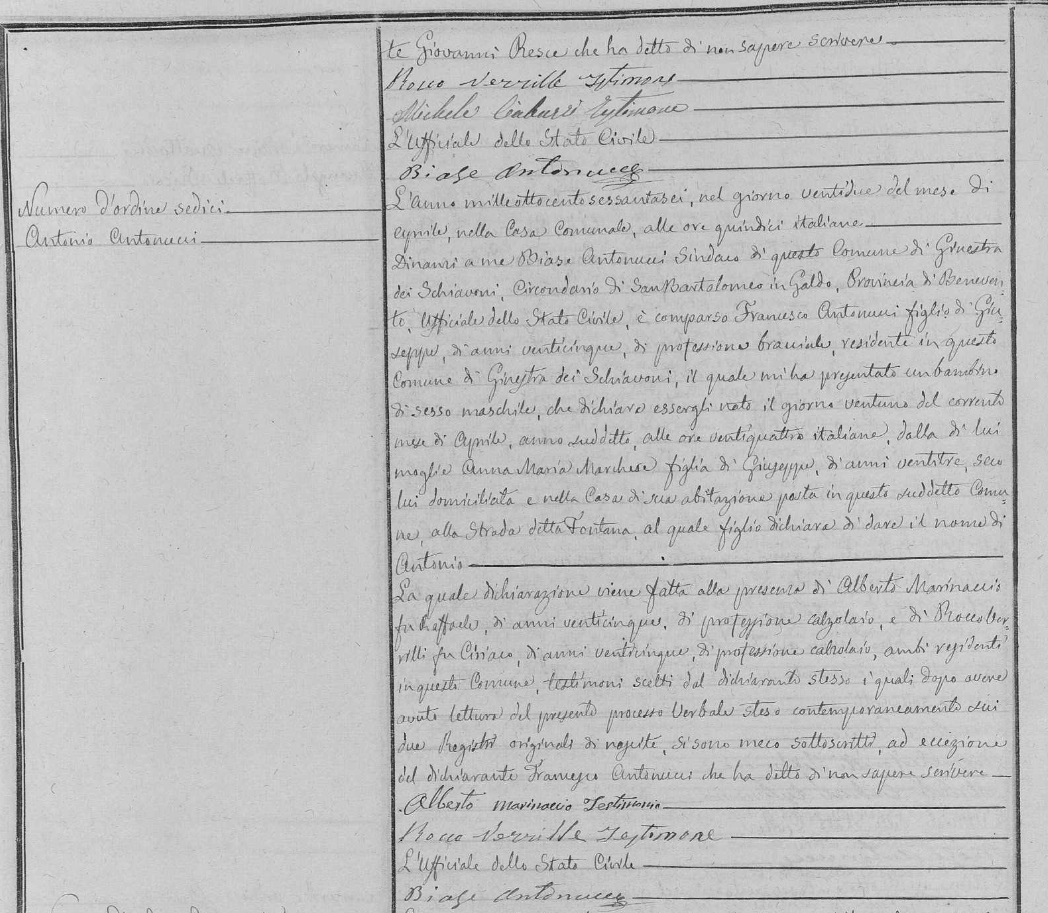 te Giovanni Resce che ha detto di non sapere scrivere
Rocco Verrille Testimone
Michele Testimone
L'Ufficiale dello Stato Civile
Biase Antonucci
Numero d'ordine sedici
Antonio Antonucci
L'anno milleottocentosessantasei, nel giorno ventidue del mese di
Aprile, nella Casa Comunale, alle ore quindici italiane
Dinanzi a me Biase Antonucci Sindaco di questo Comune di Ginestra
dei Schiavoni, Circondario di San Bartolomeo in Galdo, Provincia di Beneven-
to, Ufficiale dello Stato Civile, è comparso Francesco Antonucci figlio di Giu-
seppe, di anni venticinque, di professione bracciale, residente in questo
Comune di Ginestra dei Schiavoni, il quale mi ha presentato un bambino
di sesso maschile, che dichiara essergli nato il giorno ventuno del corrente
mese di Aprile, anno suddetto, alle ore ventiquattro italiane, dalla di lui
moglie Anna Maria Marchese figlia di Giuseppe, di anni ventitre, seco
lui domiciliata e nella Casa di sua abitazione posta in questo suddetto Comu-
ne, alla Strada detta Fontana, al quale figlio dichiara di dare il nome di
Antonio
La quale dichiarazione viene fatta alla presenza di Alberto Marinaccio
fu Raffaele, di anni venticinque, di professione calzolaio, e di Rocco Ver-
rilli fu Ciriaco, di anni venticinque, di professione calzolaio, ambi residenti
in questo Comune, testimoni scelti dal dichiarante stesso i quali dopo avere
avuto lettura del presente processo verbale steso contemporaneamente sui
due Registri originali di nascite, si sono meco sottoscritti, ad eccezione
del dichiarante Francesco Antonucci che ha detto di non sapere scrivere
Alberto Marinaccio Testimonio
Rocco Verrille Testimone
L'Ufficiale dello Stato Civile
Biase Antonucci